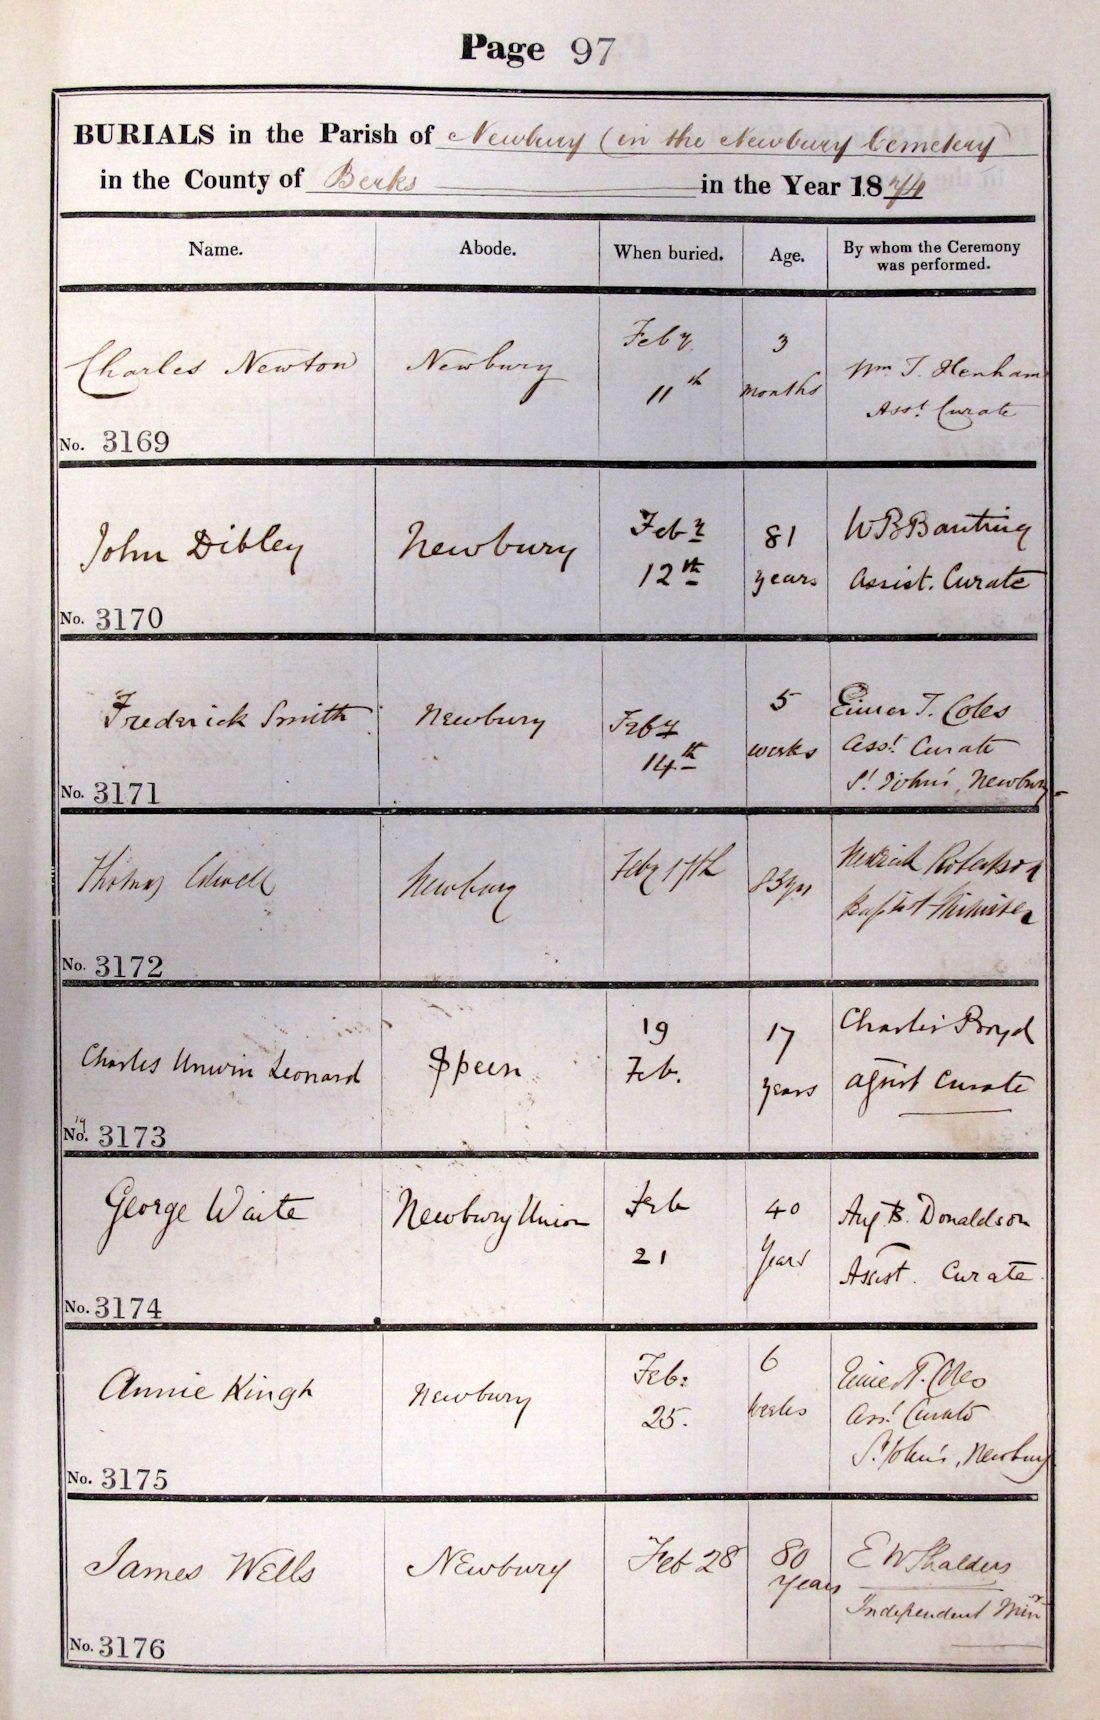 Page 97
BURIALS in the Parish of Newbury (in the Newbury Cemetery)
in the County of Berks in the Year 1874
Name. Abode. When buried. Age. By whom the Ceremony was performed.
Charles Newton Newbury Feby 11th 3 months Wm. T. Henham
Asst. Curate
No. 3169
John Dibley Newbury Feby 12th 81 years W B Banting
Assist. Curate
No. 3170
Frederick Smith Newbury Feby 14th 5 weeks T. Coles
Asst. Curate
St. John's, Newbury
No. 3171
Thomas Newbury Feby 17th 83 yrs
Baptist Minister
No. 3172
Charles Unwin Leonard Speen 19 Feb. 17 years Charles Boyd
Assist Curate
No. 3173
George Waite Newbury Union Feb 21 40 Years Aug. B. Donaldson
Assist. Curate.
No. 3174
Annie Newbury Feb: 25. 6 weeks T. Coles
Asst. Curate
St. John's, Newbury
No. 3175
James Wells Newbury Feb 28 80 years E W Shalders
Independent Minr
No. 3176